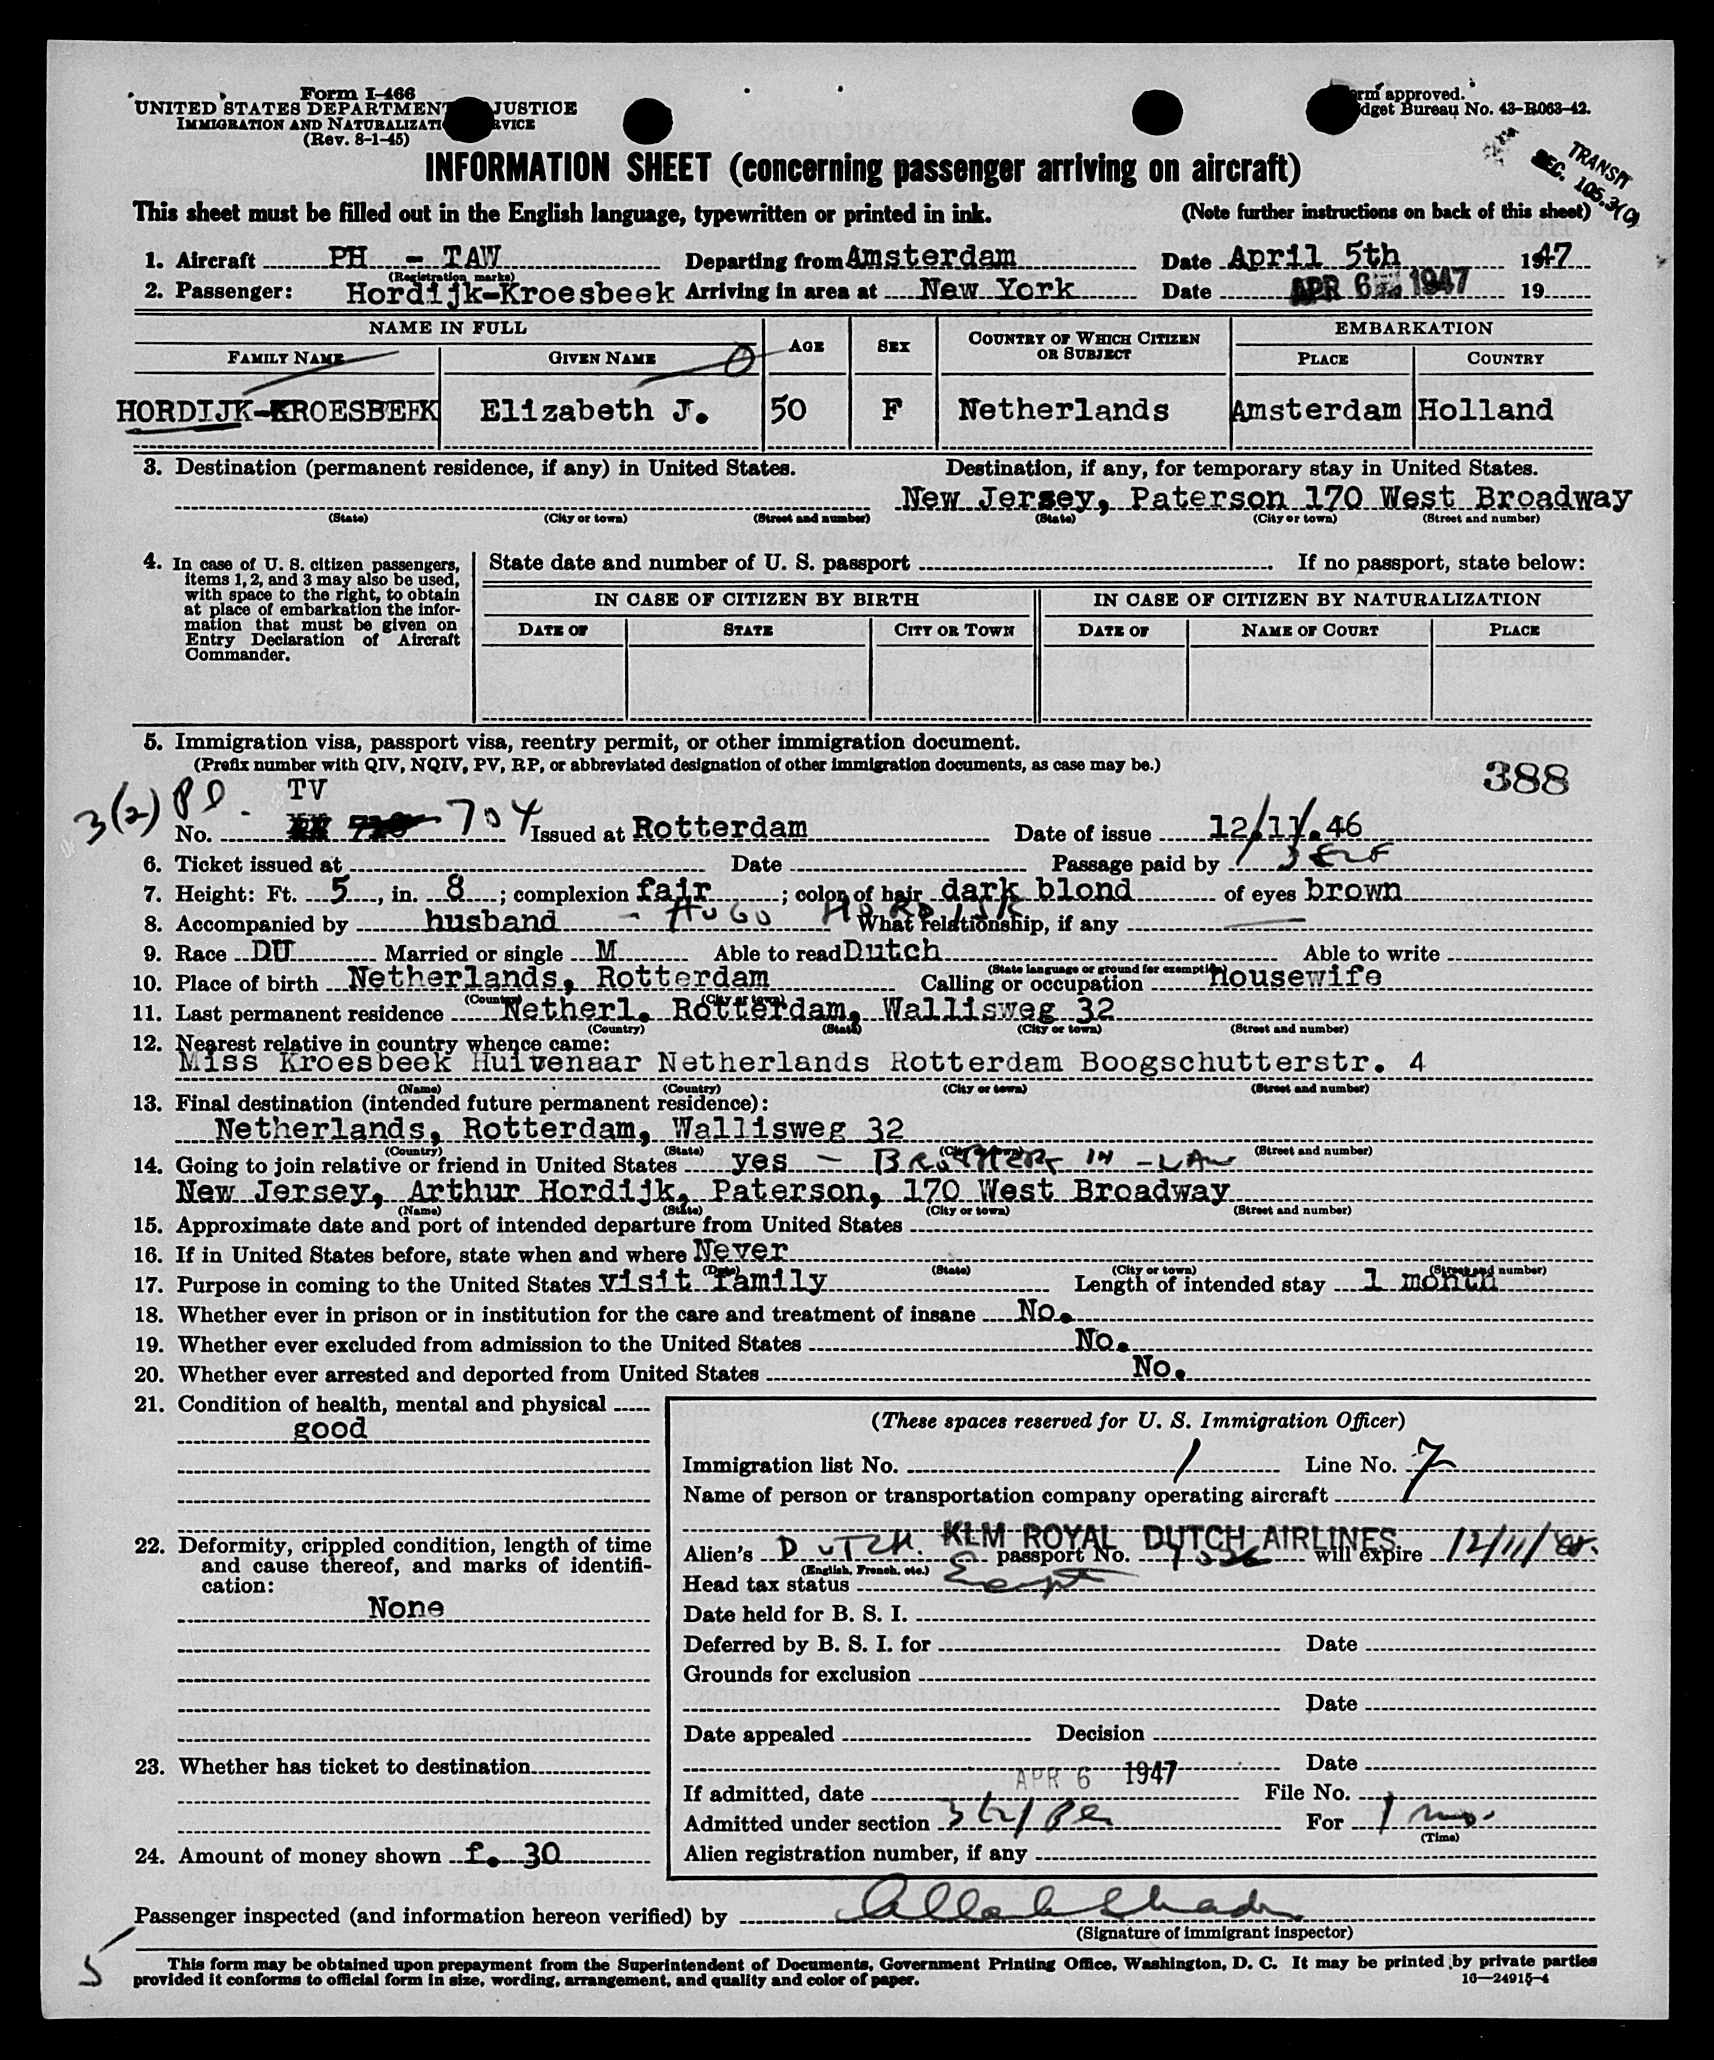 Form I-466
UNITED STATES DEPARTMENT JUSTICE
IMMIGRATION AND NATURALIZATI RVICE
(Rev. 8-1-45)
rm approved.
dget Bureau No. 43-R063-42.
TRANSIT
SEC. 105.3(c)
INFORMATION SHEET (concerning passenger arriving on aircraft)
This sheet must be filled out in the English language, typewritten or printed in ink. (Note further instructions on back of this sheet)
1. Aircraft PH - TAW Departing from Amsterdam Date April 5th 1947
(Registration marks)
2. Passenger: Hordijk-Kroesbeek Arriving in area at New York Date APR 6 1947 19
NAME IN FULL AGE SEX COUNTRY OF WHICH CITIZEN OR SUBJECT EMBARKATION
FAMILY NAME GIVEN NAME PLACE COUNTRY
HORDIJK-KROESBEEK Elizabeth J. 50 F Netherlands Amsterdam Holland
3. Destination (permanent residence, if any) in United States. Destination, if any, for temporary stay in United States.
New Jersey, Paterson 170 West Broadway
(State) (City or town) (Street and number) (State) (City or town) (Street and number)
4. In case of U. S. citizen passengers, items 1, 2, and 3 may also be used, with space to the right, to obtain at place of embarkation the information that must be given on Entry Declaration of Aircraft Commander.
State date and number of U. S. passport . If no passport, state below:
IN CASE OF CITIZEN BY BIRTH IN CASE OF CITIZEN BY NATURALIZATION
DATE OF STATE CITY OR TOWN DATE OF NAME OF COURT PLACE
5. Immigration visa, passport visa, reentry permit, or other immigration document.
(Prefix number with QIV, NQIV, PV, RP, or abbreviated designation of other immigration documents, as case may be.)
388
3(2) TV
No. 704 Issued at Rotterdam Date of issue 12/11.46
6. Ticket issued at Date Passage paid by SELF
7. Height: Ft. 5, in. 8; complexion fair; color of hair dark blond of eyes brown
8. Accompanied by husband - HUGO HORDIJK What relationship, if any
9. Race DU Married or single M Able to read Dutch Able to write
(State language or ground for exemption)
10. Place of birth Netherlands, Rotterdam Calling or occupation housewife
(Country) (City or town)
11. Last permanent residence Netherl. Rotterdam, Wallisweg 32
(Country) (State) (City or town) (Street and number)
12. Nearest relative in country whence came:
Miss Kroesbeek Huivenaar Netherlands Rotterdam Boogschutterstr. 4
(Name) (Country) (City or town) (Street and number)
13. Final destination (intended future permanent residence):
Netherlands, Rotterdam, Wallisweg 32
(Country) (State) (City or town) (Street and number)
14. Going to join relative or friend in United States yes - BROTHER-IN-LAW
New Jersey, Arthur Hordijk, Paterson, 170 West Broadway
(Name) (State) (City or town) (Street and number)
15. Approximate date and port of intended departure from United States
16. If in United States before, state when and where Never
(Date) (State) (City or town) (Street and number)
17. Purpose in coming to the United States visit family Length of intended stay 1 month
18. Whether ever in prison or in institution for the care and treatment of insane No.
19. Whether ever excluded from admission to the United States No.
20. Whether ever arrested and deported from United States No.
21. Condition of health, mental and physical
good
22. Deformity, crippled condition, length of time and cause thereof, and marks of identification:
None
23. Whether has ticket to destination
24. Amount of money shown f. 30
(These spaces reserved for U. S. Immigration Officer)
Immigration list No. 1 Line No. 7
Name of person or transportation company operating aircraft
KLM ROYAL DUTCH AIRLINES
Alien's DUTCH passport No. will expire 12/11/48.
(English, French, etc.)
Head tax status
Date held for B. S. I.
Deferred by B. S. I. for Date
Grounds for exclusion
Date
Date appealed Decision
Date
If admitted, date APR 6 1947 File No.
Admitted under section 3(2) For 1 mo.
(Time)
Alien registration number, if any
Passenger inspected (and information hereon verified) by
(Signature of immigrant inspector)
5
This form may be obtained upon prepayment from the Superintendent of Documents, Government Printing Office, Washington, D. C. It may be printed by private parties
provided it conforms to official form in size, wording, arrangement, and quality and color of paper. 16-24915-4